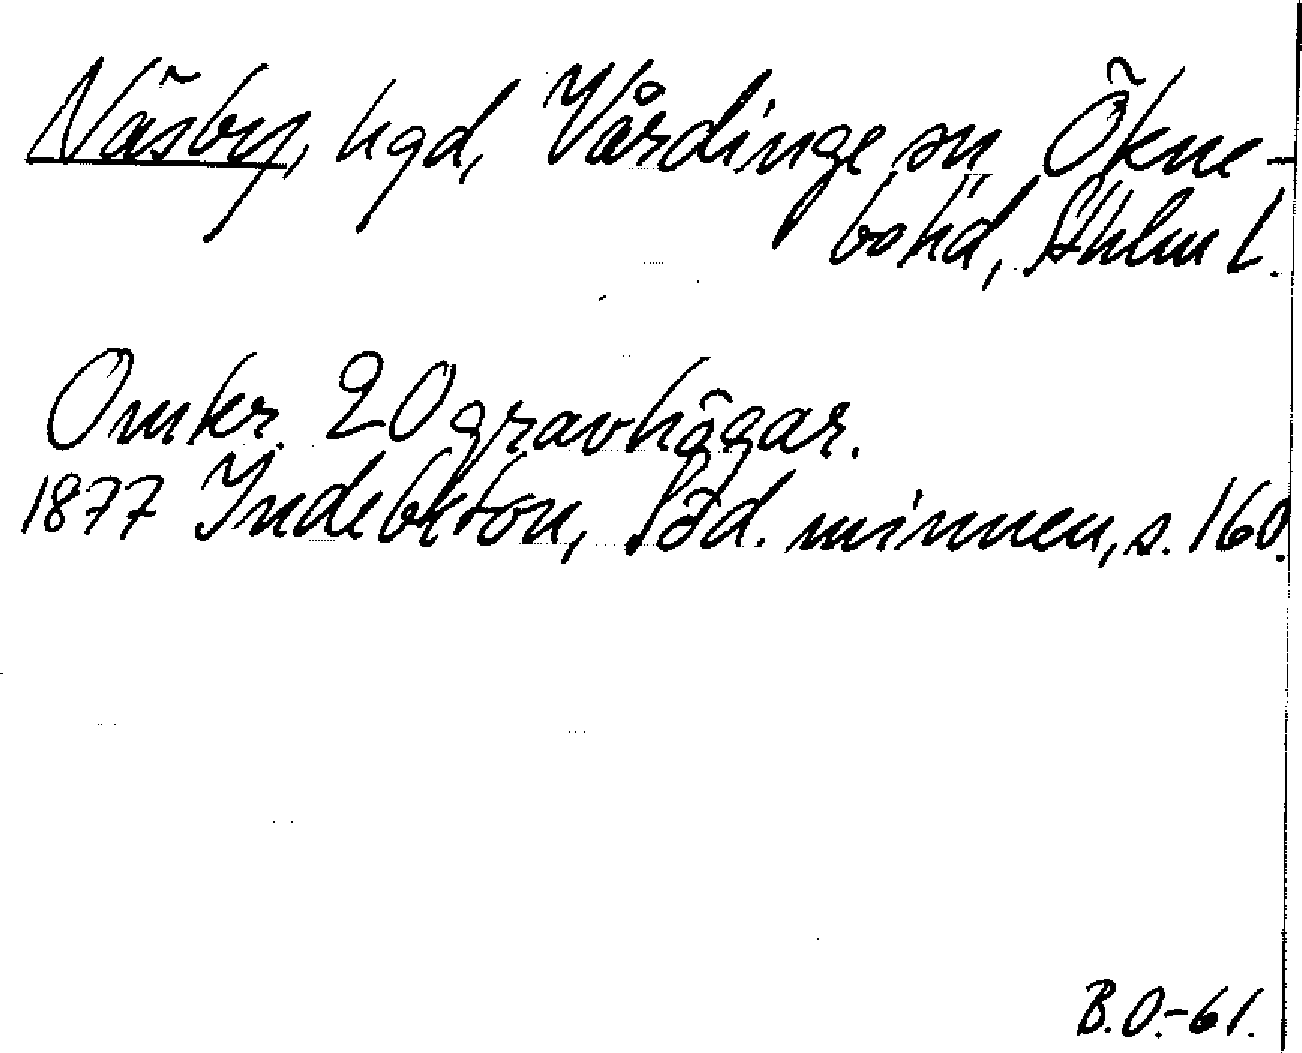 Näsby, hgd, Vårdinge sn Ökne-
bo hd, Sthlm l.
Omkr. 20 gravhögar.
1877 Indebetou, Söd. minnen, s. 160.
B.O.-61.